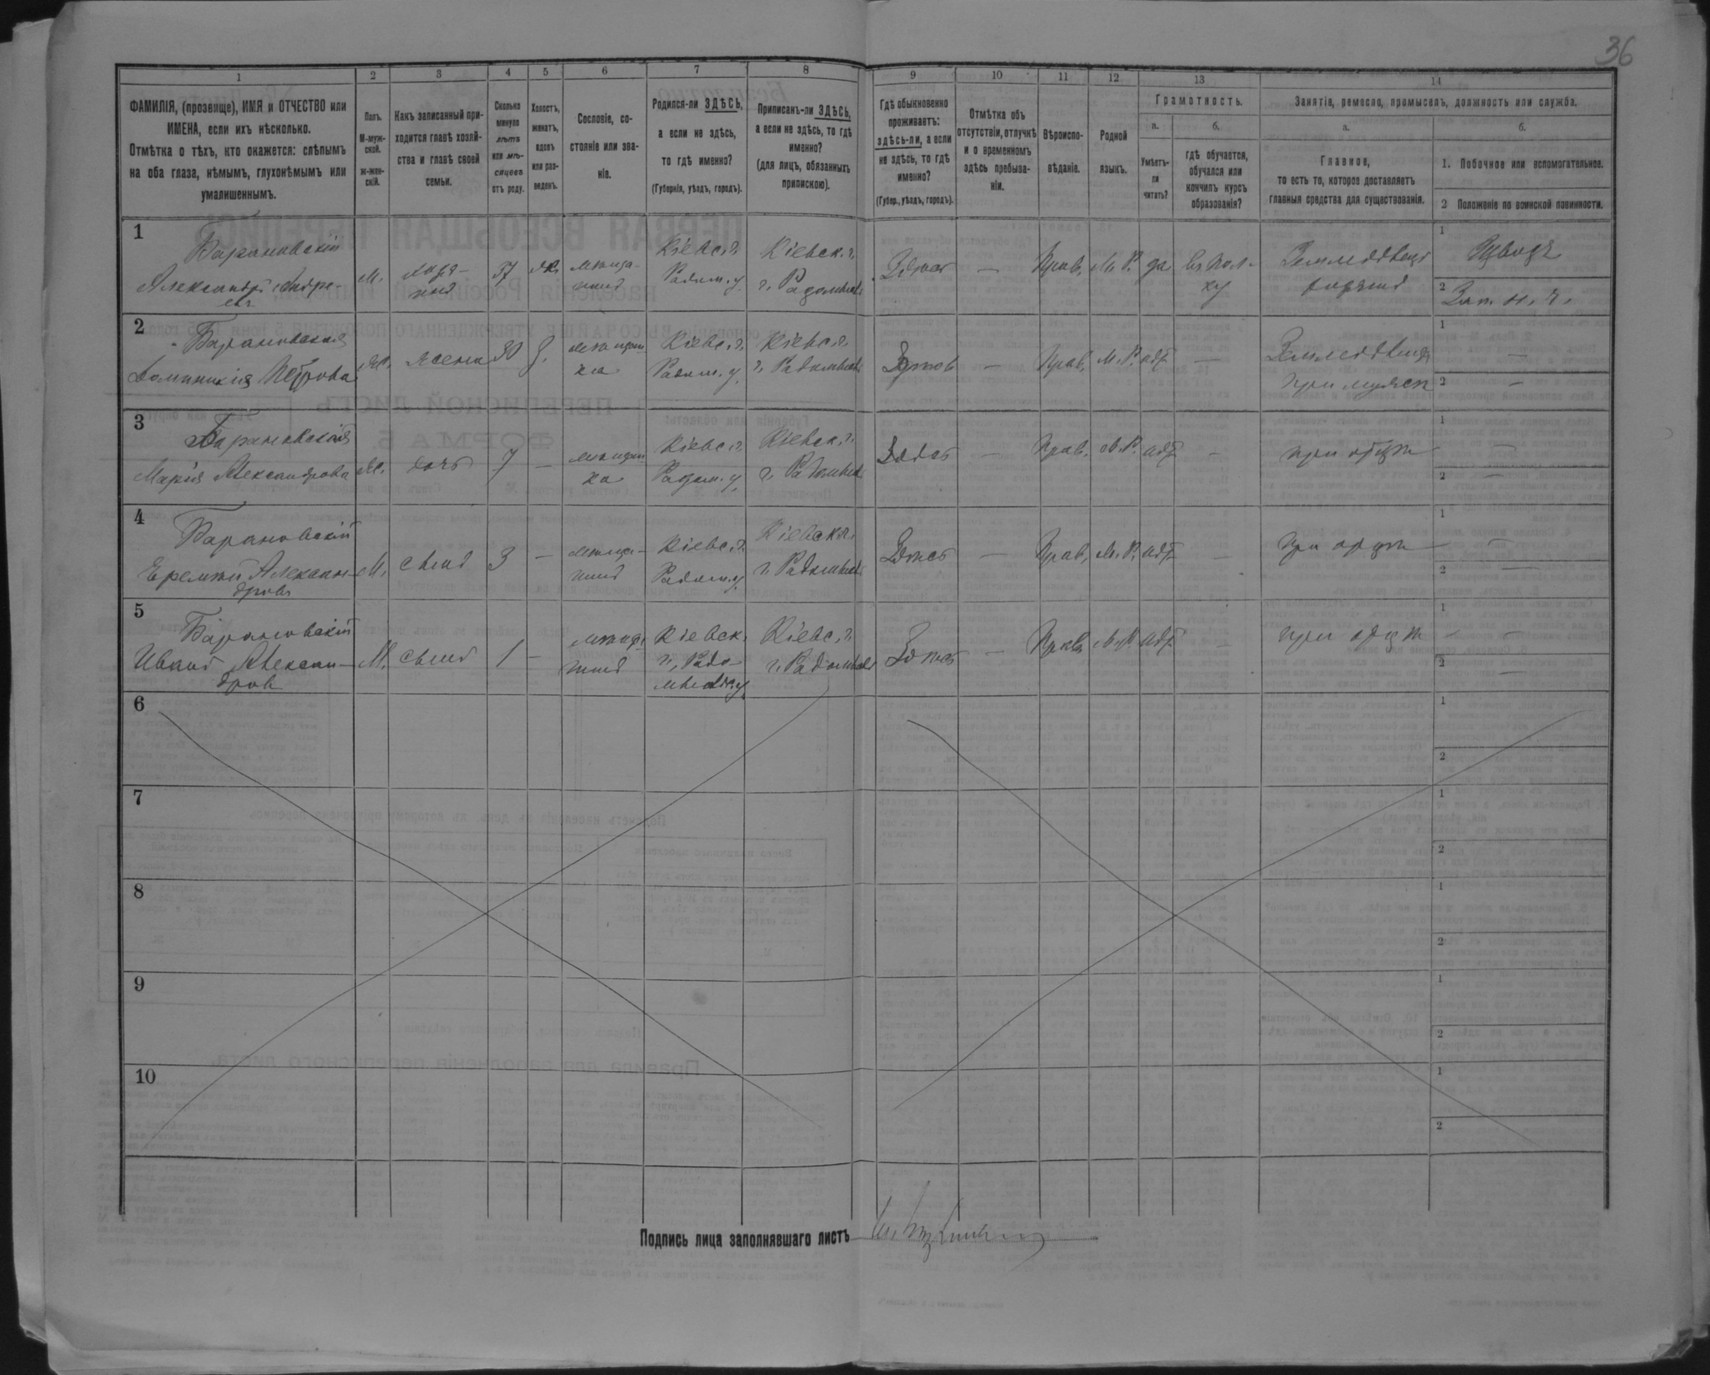 36
1 2 3 4 5 6 7 8 9 10 11 12 13 14
ФАМИЛІЯ, (прозвище), ИМЯ и ОТЧЕСТВО или
ИМЕНА, если ихъ нѣсколько.
Отмѣтка о тѣхъ, кто окажется: слѣпымъ
на оба глаза, нѣмымъ, глухонѣмымъ или
умалишеннымъ.
Полъ.
М-муж-
ской.
ж-жен-
скій.
Какъ записанный при-
ходится главѣ хозяй-
ства и главѣ своей
семьи.
Сколько
минуло
лѣтъ
или мѣ-
сяцевъ
отъ роду.
Холостъ,
женатъ,
вдовъ
или раз-
веденъ.
Сословіе, со-
стояніе или зва-
ніе.
Родился-ли ЗДѢСЬ,
а если не здѣсь,
то гдѣ именно?
(Губернія, уѣздъ, городъ).
Приписанъ-ли ЗДѢСЬ,
а если не здѣсь, то гдѣ
именно?
(для лицъ, обязанныхъ
припискою).
Гдѣ обыкновенно
проживаетъ:
здѣсь-ли, а если
не здѣсь, то гдѣ
именно?
(Губер., уѣздъ, городъ).
Отмѣтка объ
отсутствіи, отлучкѣ
и о временномъ
здѣсь пребыва-
ніи.
Вѣроиспо-
вѣданіе.
Родной
языкъ.
Грамотность.
а.
Умѣетъ-
ли
читать?
б.
гдѣ обучается,
обучался или
кончилъ курсъ
образованія?
Занятіе, ремесло, промыселъ, должность или служба.
а.
Главное,
то есть то, которое доставляетъ
главныя средства для существованія.
б.
1. Побочное или вспомогательное.
2 Положеніе по воинской повинности.
1
Барановскій
Александръ Андре-
евъ
М. хозя-
инъ 37 ж. мѣща-
нинъ Кіевс. г.
Радом. у. Кіевск. г.
г. Радомысль Здѣсь — Прав. М. Р. да Земледѣлецъ
хозяинъ
1
2
2
Барановская
Доминикія Петрова
ж. жена 30 з. мѣщан
ка Кіевс. г.
Радом. у. Кіевск. г.
г. Радомысль Здѣсь — Прав. М. Р. нѣт — Земледѣлецъ
при мужѣ
1 —
2 —
3
Барановская
Марія Александрова
ж. дочь 7 — мѣщан
ка Кіевс. г.
Радом. у. Кіевск. г.
г. Радомысль Здѣсь — Прав. М. Р. нѣт — при отцѣ
1 —
2 —
4
Барановскій
Еремій Алексан-
дровъ
М. сынъ 3 — мѣща-
нинъ Кіевс. г.
Радом. у. Кіевск. г.
г. Радомысль Здѣсь — Прав. М. Р. нѣт — при отцѣ
1 —
2 —
5
Барановскій
Иванъ Алексан-
дров
М. сынъ 1 — мѣща-
нинъ Кіевск.
г. Радо-
мысл. у. Кіевс. г.
г. Радомысль Здѣсь — Прав. М. Р. нѣт — при отцѣ
1 —
2 —
6
1
2
7
1
2
8
1
2
9
1
2
10
1
2
Подпись лица заполнявшаго листъ